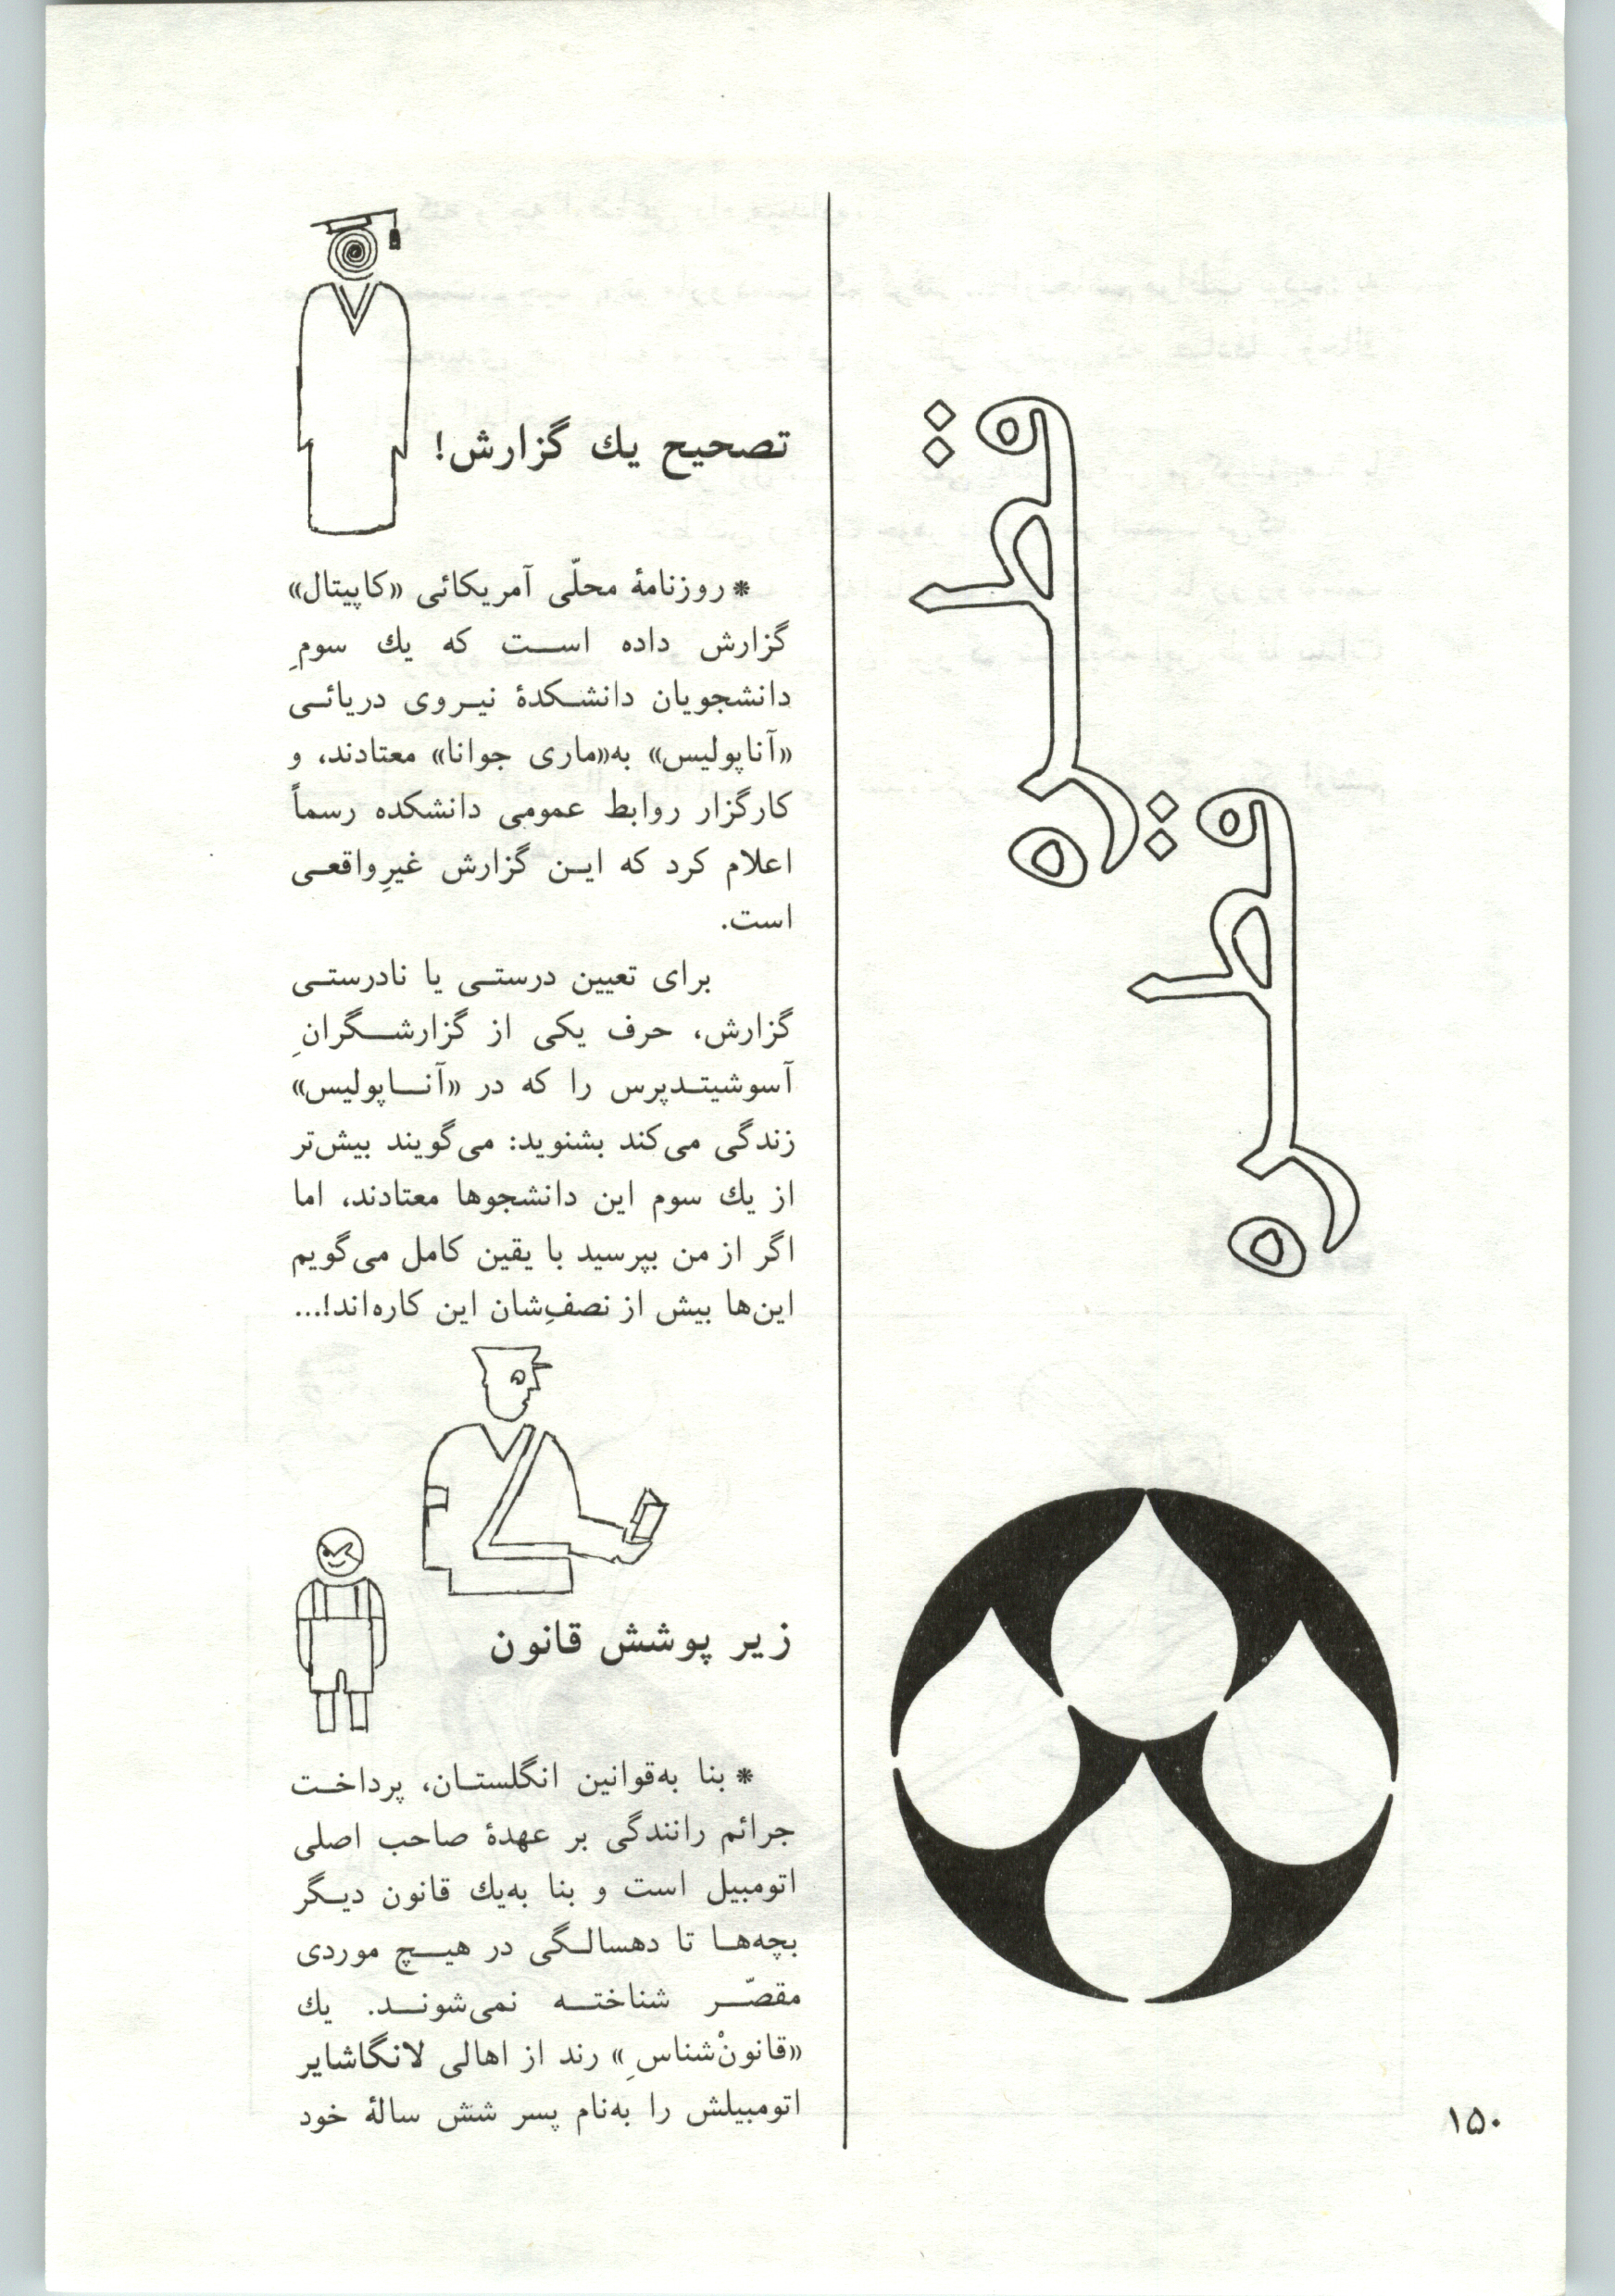 قطره
قطره
تصحیح یك گزارش!
* روزنامهٔ محلّی آمریکائی «کاپیتال»
گزارش داده است که یك سومِ
دانشجویان دانشکدهٔ نیروی دریائی
«آناپولیس» به«ماری جوانا» معتادند، و
کارگزار روابط عمومی دانشکده رسماً
اعلام کرد که این گزارش غیرِواقعی
است.
برای تعیین درستی یا نادرستی
گزارش، حرف یکی از گزارشگرانِ
آسوشیتدپرس را که در «آناپولیس»
زندگی می‌کند بشنوید: می‌گویند بیش‌تر
از یك سوم این دانشجوها معتادند، اما
اگر از من بپرسید با یقین کامل می‌گویم
این‌ها بیش از نصفِ‌شان این کاره‌اند!...
زیر پوشش قانون
* بنا به‌قوانین انگلستان، پرداخت
جرائم رانندگی بر عهدهٔ صاحب اصلی
اتومبیل است و بنا به‌یك قانون دیگر
بچه‌ها تا دهسالگی در هیچ موردی
مقصّر شناخته نمی‌شوند. یك
«قانونْ‌شناسِ» رند از اهالی لانگاشایر
اتومبیلش را به‌نام پسر شش سالهٔ خود
۱۵۰